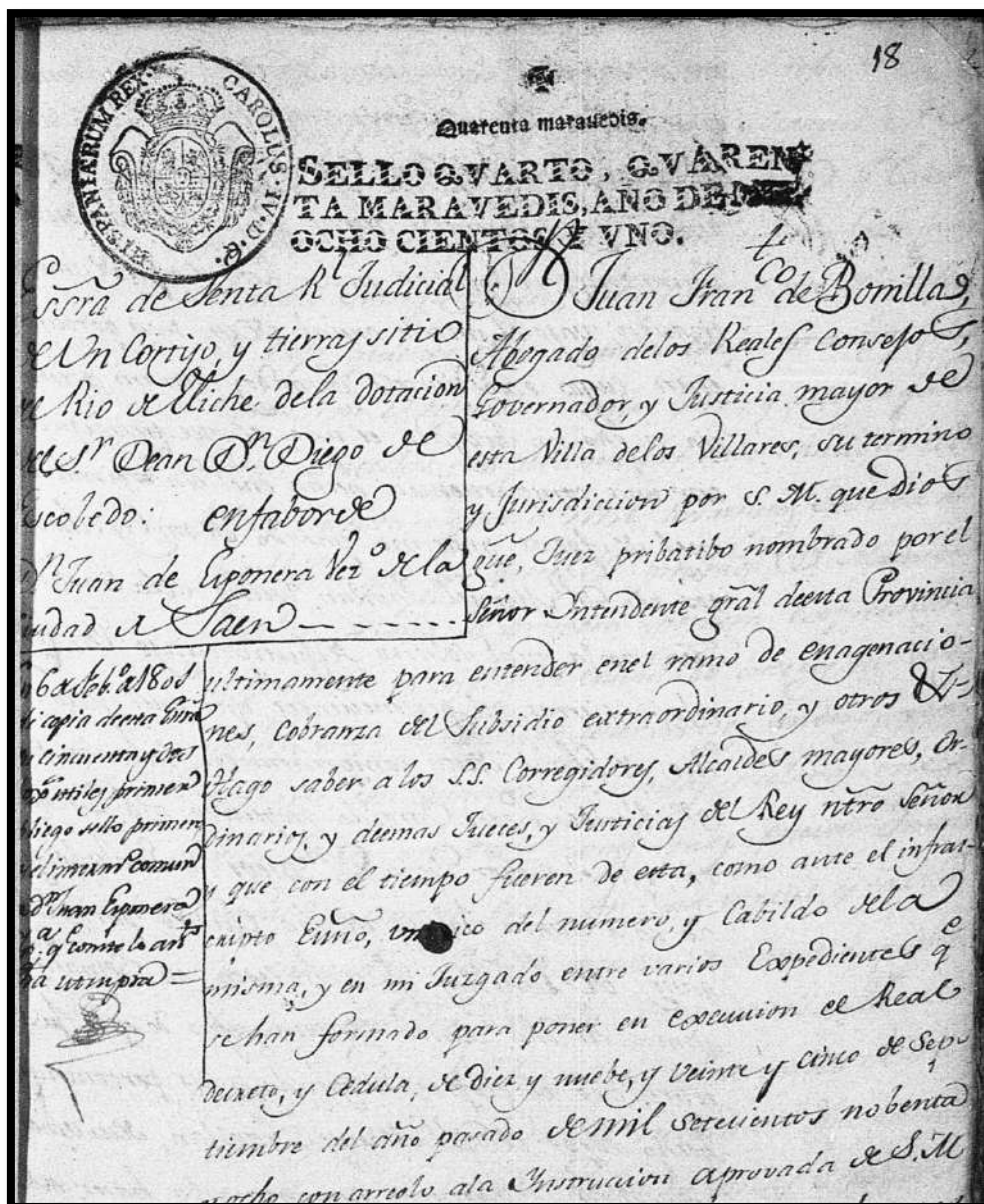 18
HISPANIARUM REX. CAROLUS. IV. D. G.
Quarenta marauedis.
SELLO QVARTO, QVAREN
TA MARAVEDIS, AÑO DE
OCHO CIENTOS Y VNO.
ssra de Venta Rl Judicial
de Un Cortijo, y tierras sitio
Rio de Eliche dela dotacion
del Sr. Dean Dn. Diego de
Escobedo: enfabor de
Dn. Juan de Esponera Vezo. de la
Ciudad de Jaen
6 de Feb.o de 1801
di copia de esta
cincuenta y dos
utiles primer
pliego sello primero
comun
Dn. Juan Esponera
Juan Franco. de Bonilla,
Abogado delos Reales Consejos,
Governador, y Justicia mayor de
esta Villa delos Villares, su termino
y Jurisdiccion por S. M. que Dios
gue, Juez pribatibo nombrado por el
Señor Intendente gral de esta Provincia
ultimamente para entender en el ramo de enagenacio-
nes, Cobranza del Subsidio extraordinario, y otros &a=
Hago saber a los S.S. Corregidores, Alcaldes mayores, or-
dinarios, y demas Jueces, y Justicias del Rey ntro señor
y que con el tiempo fueren de esta, como ante el infras-
cripto Essno, unico del numero, y Cabildo de la
misma, y en mi Juzgado entre varios Expedientes qe
se han formado para poner en execucion el Real
decreto, y Cedula, de diez y nuebe, y Veinte y cinco de Sep-
tiembre del año pasado de mil setecientos nobenta
y ocho con arreglo ala Instruccion aprovada de S. M